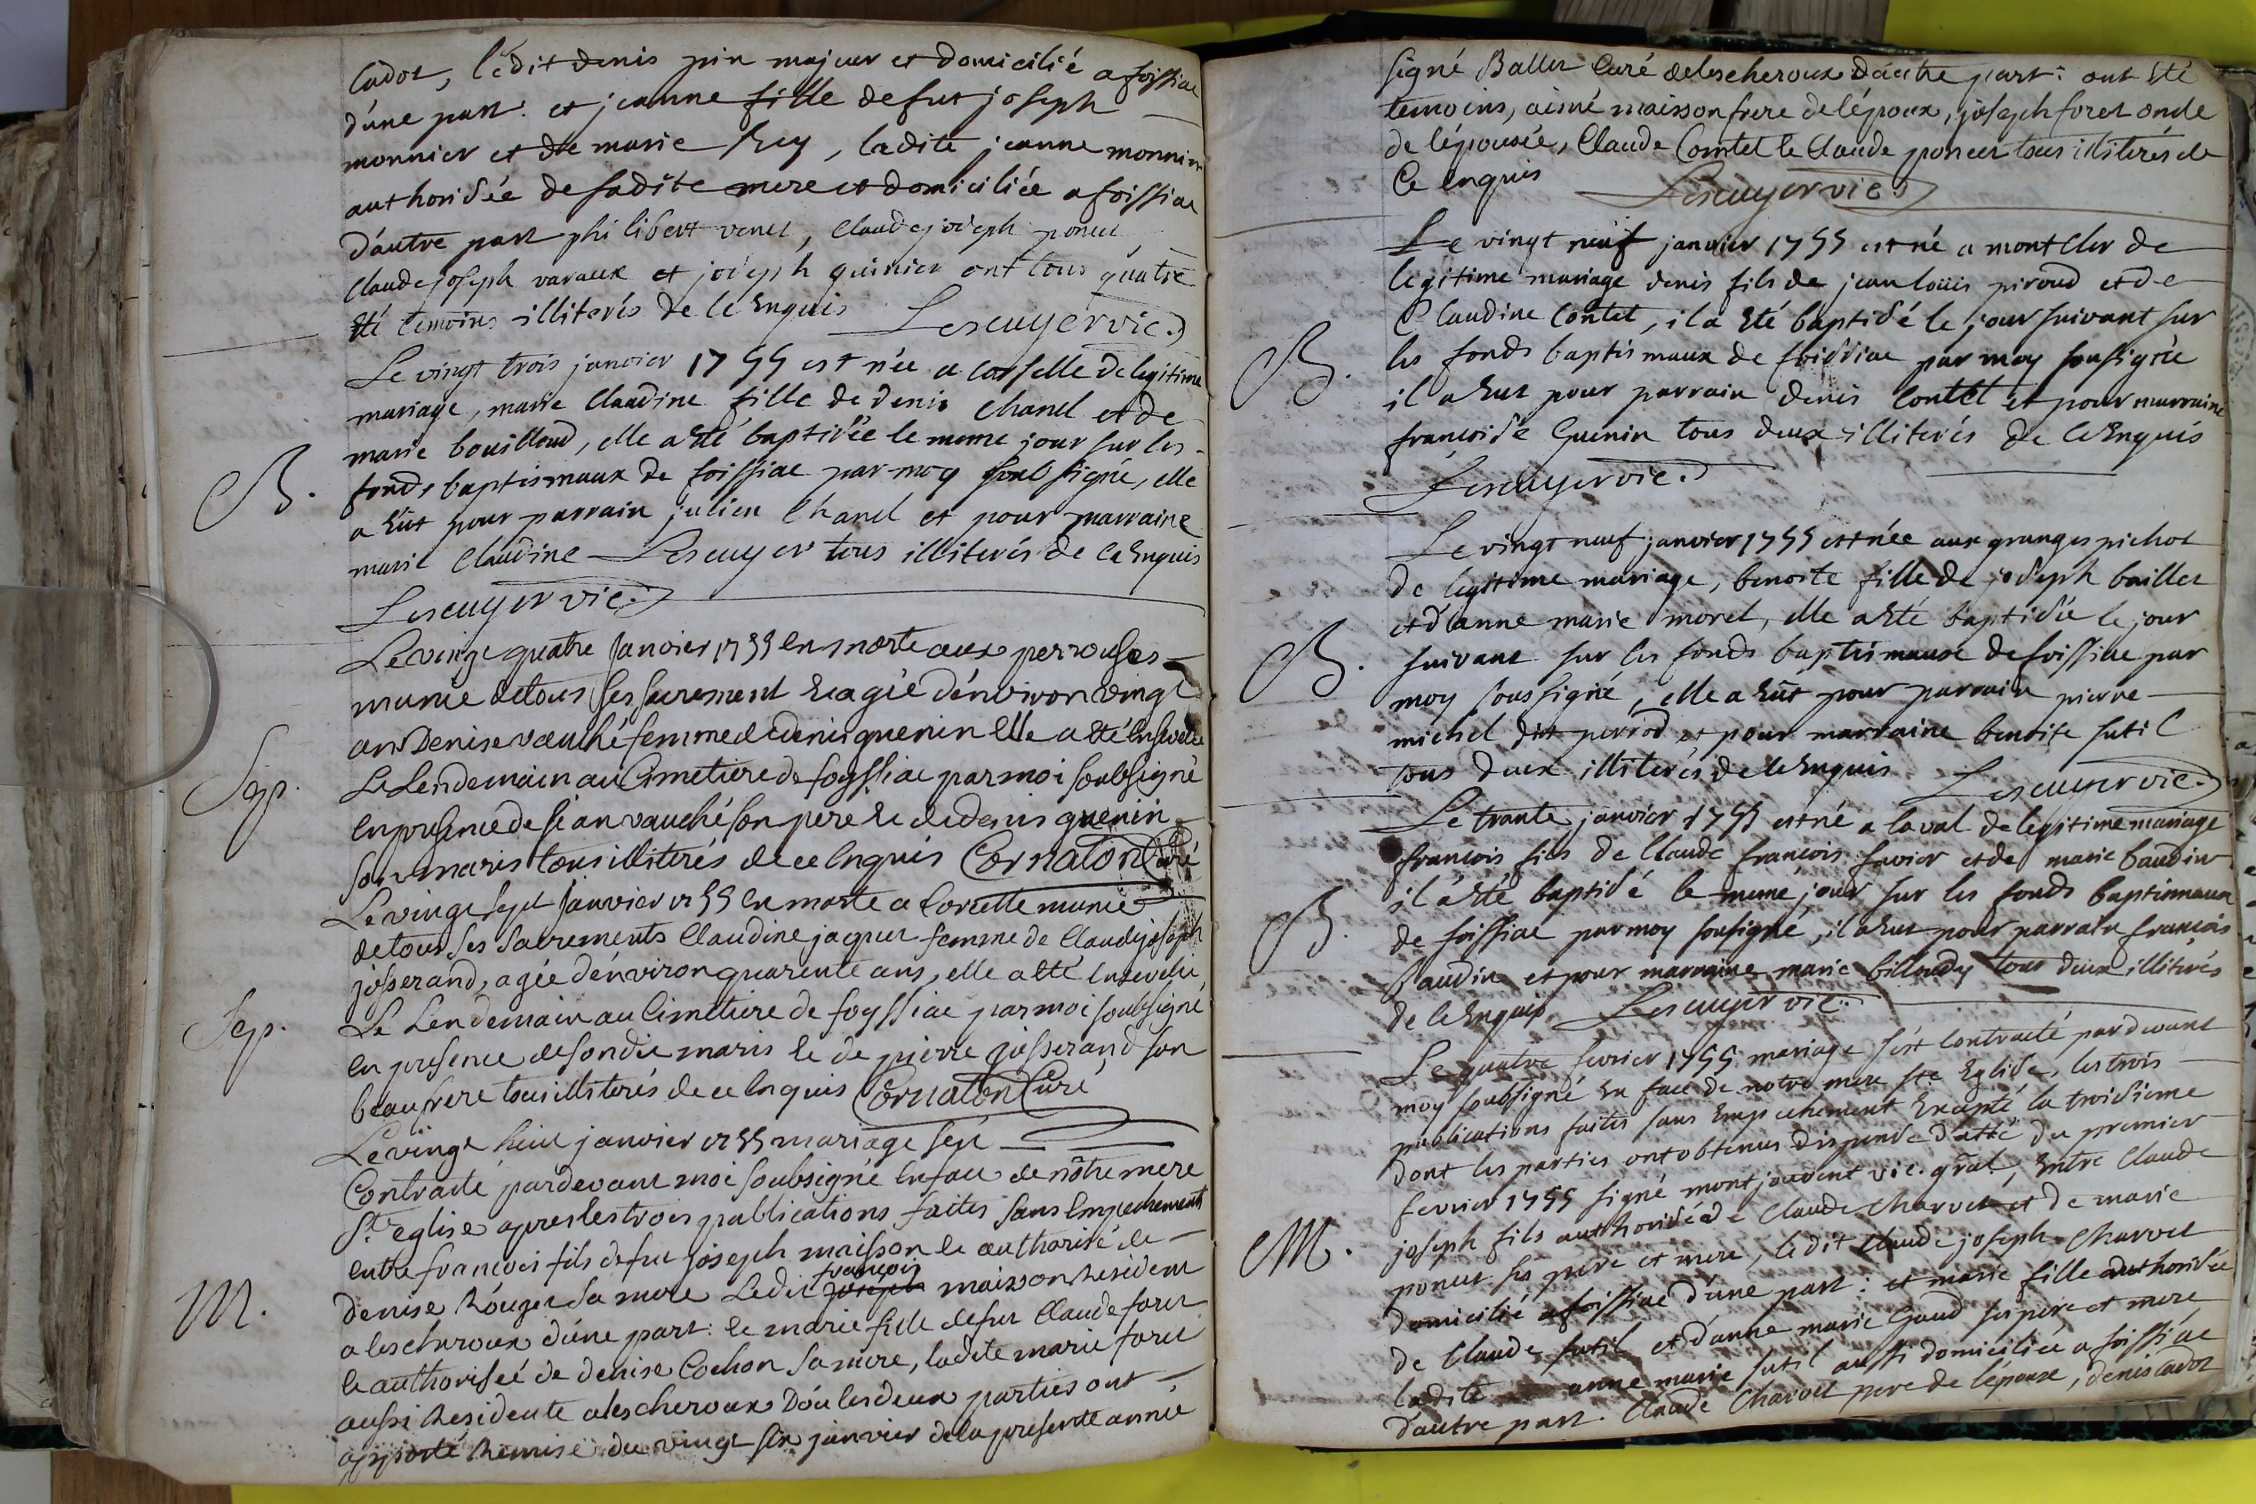 Cadot, ledit denis pin majeur et domicilié a foissiac
d'une part. et jeanne fille defut joseph
monnier et de marie Rey, ladite jeanne monnier
authorisée de sadite mere et domiciliée a foissiac
d'autre part philibert venet, Claude joseph poncet
Claude joseph varaux et joseph guinier ont tous quatre
été temoins illiterés de ce Enquis Lescuyer vic.
Le vingt trois janvier 1755 est née a Corselle de legitime
mariage, marie Claudine fille de denis Chanel et de
marie bouilloud, elle a été baptisée le meme jour sur les
fonds baptismaux de foissiac par moy soubsigné, elle
B.
a Eût pour parrain julien Chanel et pour marraine
marie Claudine Lescuyer tous illiterés de ce Enquis
Lescuyer vic.
Le vingt quatre Janvier 1755 en morte aux perrouses
munie de tous ses sacrement Ee agée d'environ vingt
ans Denise vauché femme de denis guenin Elle a été Ensevelie
Sep.
Le Lendemain au Cimetiere de foyssiac par moi soubsigné
en presence de jean vauché son pere Ee de denis guenin
son maris tous illiterés de ce Enquis Cornaton Curé
Le vingt sept Janvier 1755 en morte a Corcelle munie
de tous ses Sacrements Claudine jaquet femme de Claude joseph
josserand, agée d'environ quarente ans, elle a été Ensevelie
Sep.
Le Lendemain au Cimetiere de foyssiac par moi soubsigné
en presence de son dit maris Ee de pierre josserand son
beau frere tous illiterés de ce Enquis Cornaton Curé
Le vingt huit janvier 1755 mariage s'est
Contracté pardevant moi soubsigné En face de nôtre mere
Ste eglise apres les trois publications faites sans Empechements
entre francois fils de fut joseph maisson Ee authorisé de
denise Rouget sa mere Ledit joseph françois maisson Resident
M.
a lescheroux d'une part: Ee marie fille de fut Claude foret
Ee authorisée de denise Cochon sa mere, ladite marie foret
aussi Residente a lescheroux D'ou les deux parties ont
apporté Remise du vingt six janvier de la presente année
signé Ballet Curé de lescheroux D'autre part: ont été
temoins, aisné maisson frere de l'époux, joseph foret oncle
de l'épousée, Claude Contet Ee Claude poncet tous illiterés de
Ce Enquis Lescuyer vic.
Le vingt neuf janvier 1755 est né a montcler de
legitime mariage denis fils de jean loüis piroud et de
Claudine Contet, il a été baptisé le jour suivant sur
B.
les fonds baptismaux de foissiac par moy sousigné
il a Eut pour parrain denis Contet et pour marraine
françoise Guenin tous deux illiterés de ce Enquis
Lescuyer vic.
Le vingt neuf janvier 1755 est née aux granges pichot
de legitime mariage, benoite fille de joseph baillet
et d'anne marie morel, elle a été baptisée le jour
B.
suivant sur les fonds baptismaux de foissiac par
moy soussigné, elle a Eût pour parrain pierre
michel dit perrod et pour marraine benoite sutil
tous deux illiterés de ce Enquis Lescuyer vic.
Le trante janvier 1755 est né a laval de legitime mariage
françois fils de Claude françois favier et de marie baudin
il a été baptisé le meme jour sur les fonds baptismaux
B.
de foissiac par moy sousigné, il a Eut pour parrain françois
Baudin et pour marraine marie billoudy tous deux illiterés
de ce Enquis Lescuyer vic.
Le quatre fevrier 1755 mariage s'est Contracté pardevant
moy soubsigné En face de notre mere Ste Eglise, les trois
publications faites sans Empechement Excepté la troisieme
dont les parties ont obtenus dispense dattée du premier
fevrier 1755 signé montjouvent vic. gral, Entre Claude
joseph fils authorisé de Claude Charvet et de marie
M.
poncet ses pere et mere, ledit Claude joseph Charvet
domicilié a foissiac d'une part: et marie fille authorisée
de Claude sutil et d'anne marie Gaud ses pere et mere
ladite anne marie sutil aussi domiciliée a foissiac
D'autre part. Claude Charvet pere de l'époux, denis Cadot